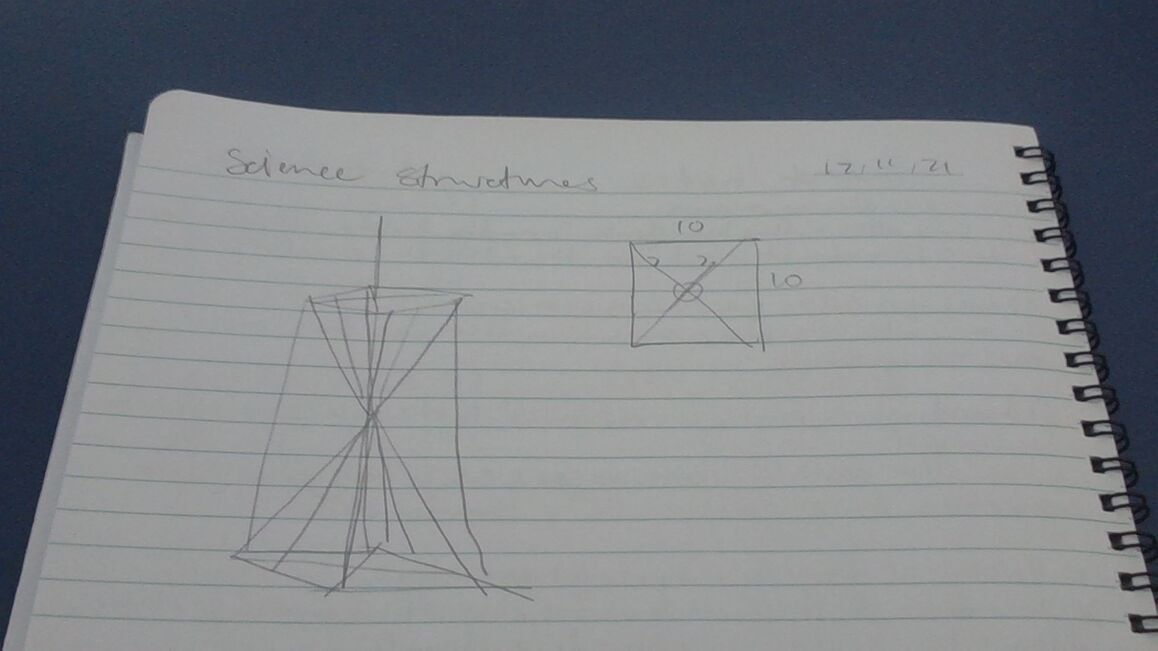 Science structures
12,11,21
10
10